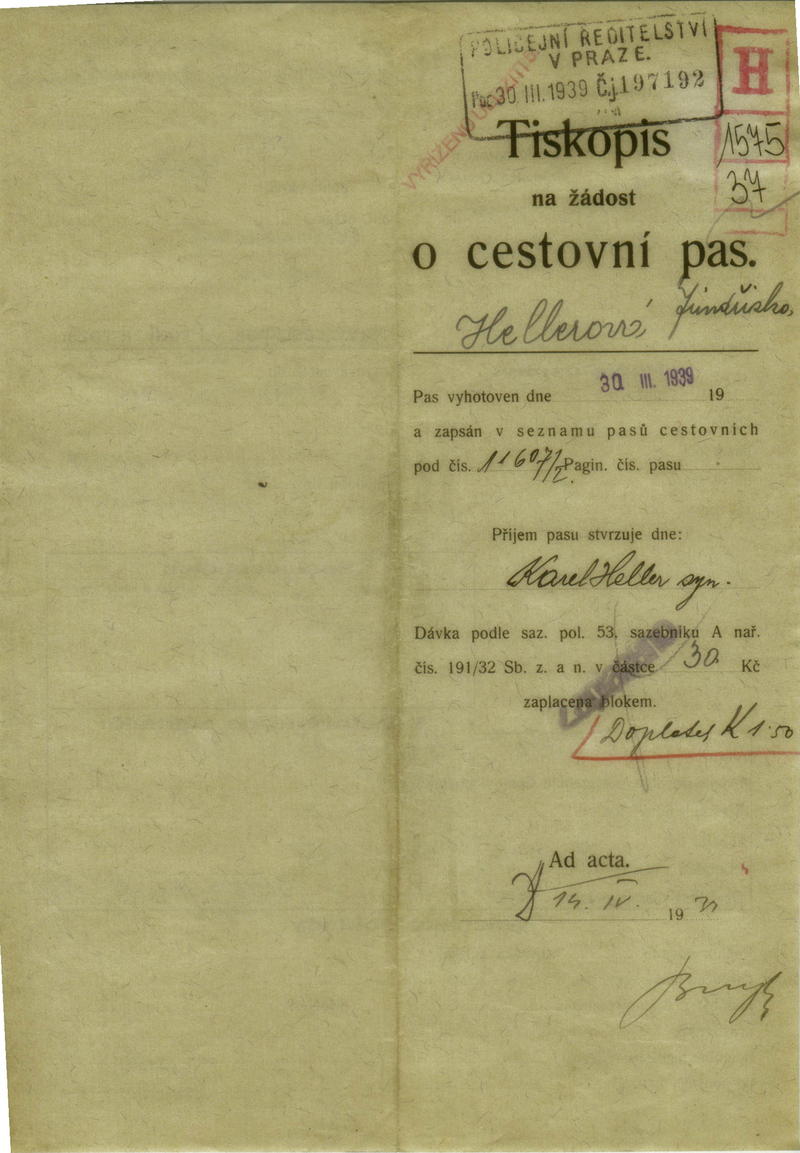 POLICEJNÍ ŘEDITELSTVÍ
V PRAZE.
30 III. 1939 Č.j. 197192
H
1575
37
Tiskopis
na žádost
o cestovní pas.
Hellerová Jindřiška
Pas vyhotoven dne 30 III. 1939 19
a zapsán v seznamu pasů cestovních
pod čís. 11607/2 Pagin. čís. pasu
Příjem pasu stvrzuje dne:
Karel Heller syn.
Dávka podle saz. pol. 53, sazebníku A nař.
čís. 191/32 Sb. z. a n. v částce 30 Kč
zaplacena blokem.
Doplatek K 1.50
Ad acta.
14. IV. 19